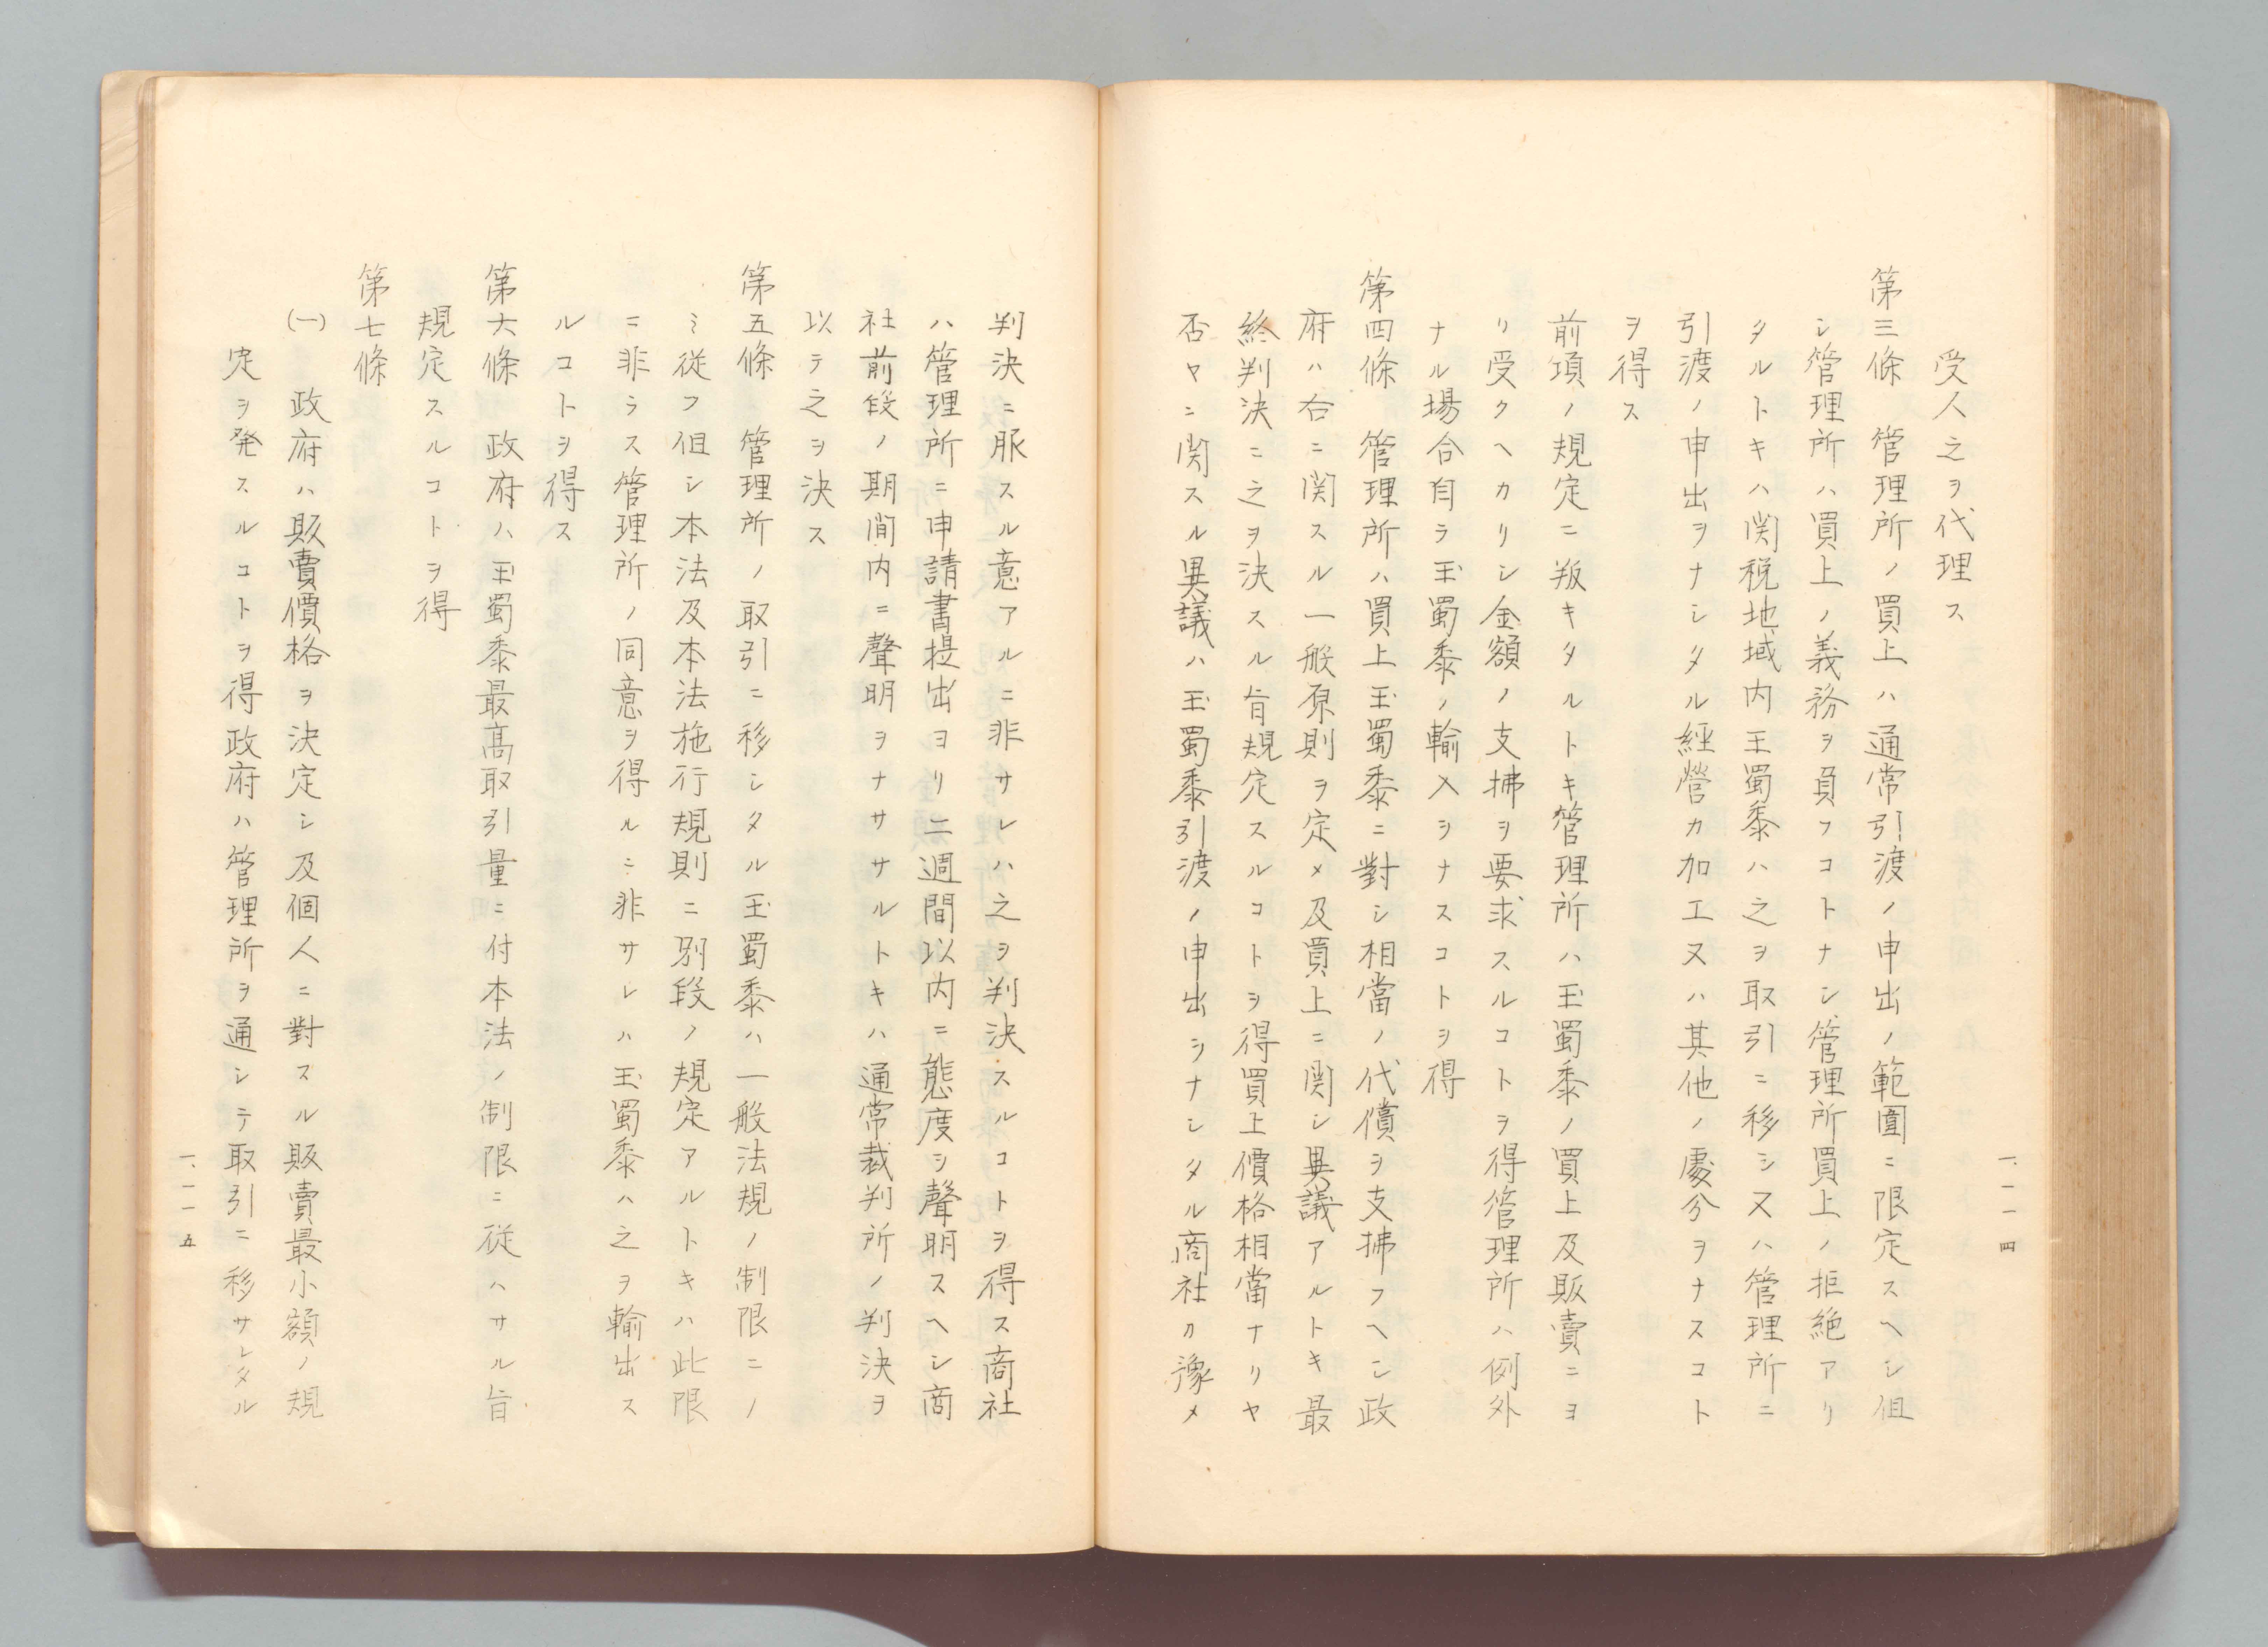 受人之ヲ代理ス
第三條　管理所ノ買上ハ通常引渡ノ申出ノ範圍ニ限定スヘシ但
シ管理所ハ買上ノ義務ヲ負フコトナシ管理所買上ノ拒絶アリ
タルトキハ関税地域内玉蜀黍ハ之ヲ取引ニ移シ又ハ管理所ニ
引渡ノ申出ヲナシタル經營カ加工又ハ其他ノ處分ヲナスコト
ヲ得ス
前項ノ規定ニ叛キタルトキ管理所ハ玉蜀黍ノ買上及販賣ニヨ
リ受クヘカリシ金額ノ支拂ヲ要求スルコトヲ得管理所ハ例外
ナル場合自ラ玉蜀黍ノ輸入ヲナスコトヲ得
第四條　管理所ハ買上玉蜀黍ニ對シ相當ノ代償ヲ支拂フヘシ政
府ハ右ニ関スル一般原則ヲ定メ及買上ニ関シ異議アルトキ最
終判決ニ之ヲ決スル旨規定スルコトヲ得買上價格相當ナリヤ
否ヤニ関スル異議ハ玉蜀黍引渡ノ申出ヲナシタル商社カ豫メ
一、一一四
判決ニ服スル意アルニ非サレハ之ヲ判決スルコトヲ得ス商社
ハ管理所ニ申請書提出ヨリ二週間以内ニ態度ヲ聲明スヘシ商
社前段ノ期間内ニ聲明ヲナササルトキハ通常裁判所ノ判決ヲ
以テ之ヲ決ス
第五條　管理所ノ取引ニ移シタル玉蜀黍ハ一般法規ノ制限ニノ
ミ從フ但シ本法及本法施行規則ニ別段ノ規定アルトキハ此限
ニ非ラス管理所ノ同意ヲ得ルニ非サレハ玉蜀黍ハ之ヲ輸出ス
ルコトヲ得ス
第六條　政府ハ玉蜀黍最高取引量ニ付本法ノ制限ニ従ハサル旨
規定スルコトヲ得
第七條
(一)　政府ハ販賣價格ヲ決定シ及個人ニ對スル販賣最小額ノ規
定ヲ発スルコトヲ得政府ハ管理所ヲ通シテ取引ニ移サレタル
一、一一五